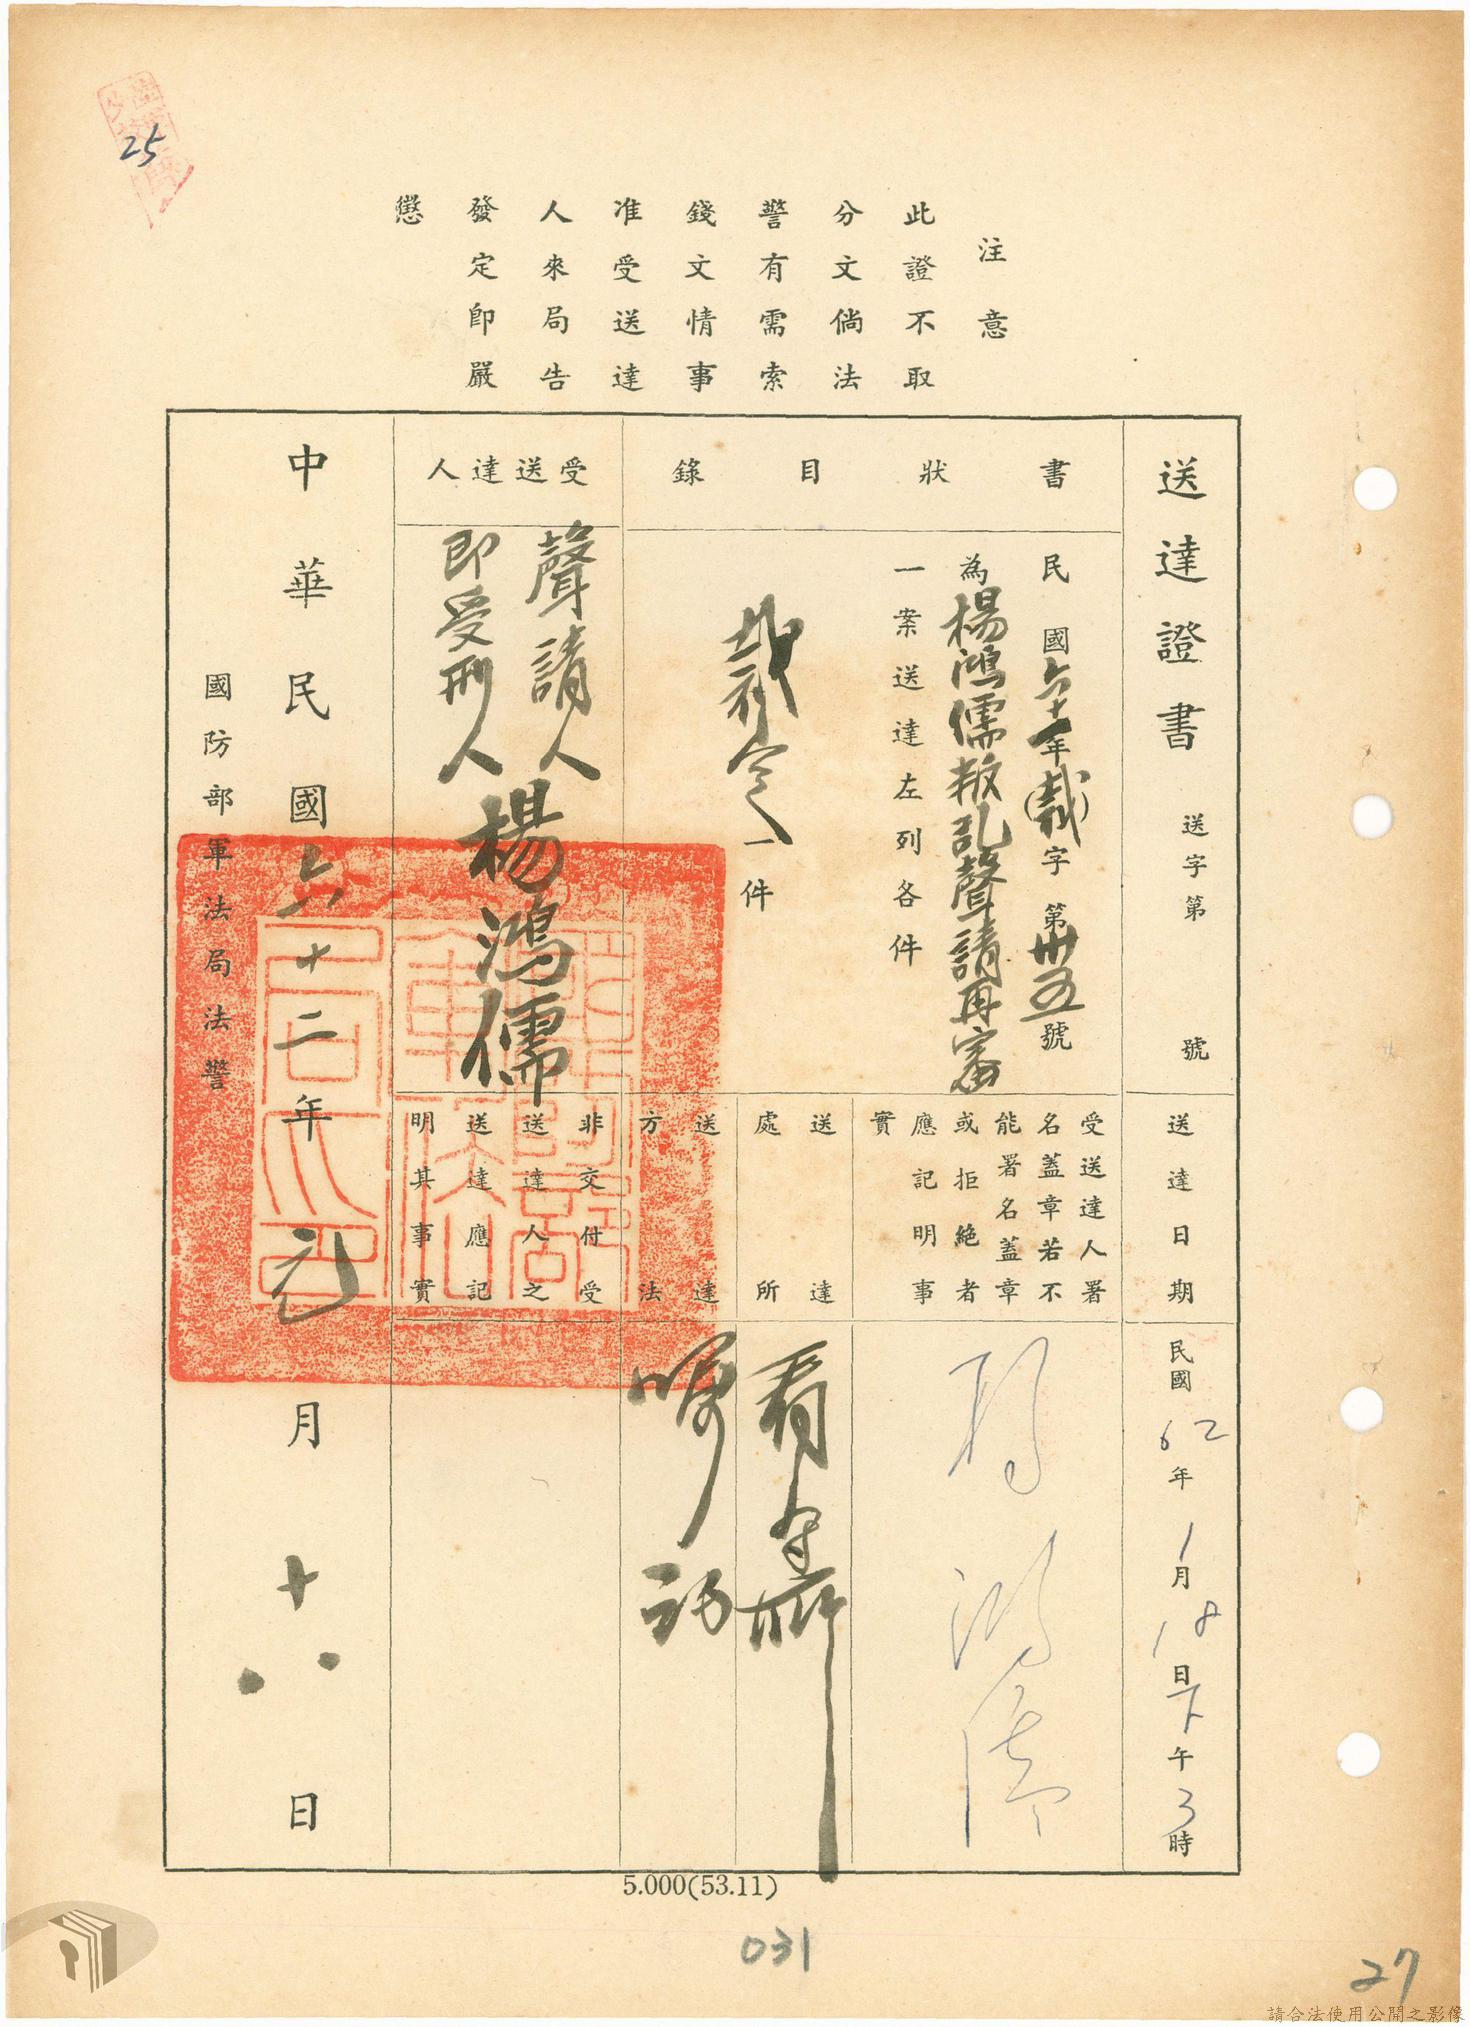 25
注意
此證不取
分文倘法
警有需索
錢文情事
准受送達
人來局告
發定即嚴
懲
送達證書
送字第 號
書狀目錄
民國六十一年(裁)字第卅五號
為楊鴻儒叛亂聲請再審
一案送達左列各件
裁定一件
受送達人
聲請人
即受刑人
楊鴻儒
送達日期
民國62年1月18日下午3時
受送達人署
名蓋章若不
能署名蓋章
或拒絕者
應記明事
實
楊鴻儒
送達
處所
看守所
送達
方法
囑託
非交付受
送達人之
送達應記
明其事實
中華民國六十二年元月十八日
國防部軍法局法警
5.000(53.11)
031
27
請合法使用公開之影像